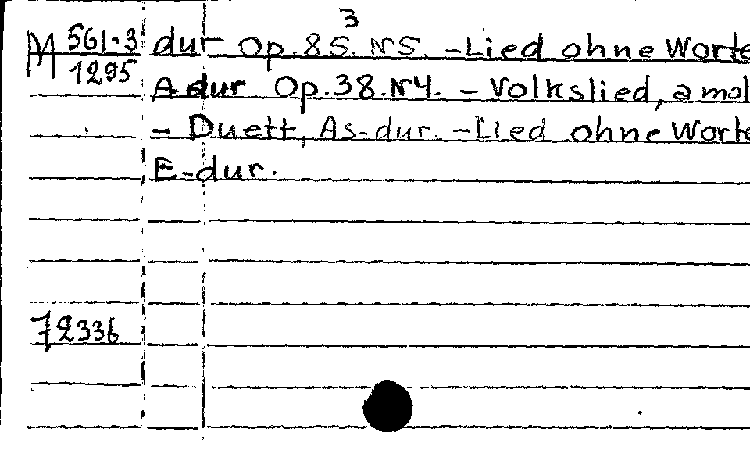 3
M 561-3 dur Op.85. N5. -Lied ohne Worte
1295 A dur Op.38.N4. - Volkslied, a mol
- Duett, As-dur. -Lied ohne Worte
E-dur.
72336